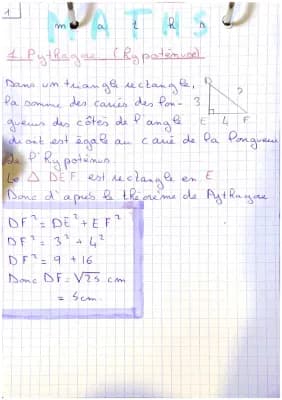 1
MATHS
m a t h s
1. Pythagore (hypoténuse)
Dans un triangle rectangle,
la somme des carrés des lon-
gueurs des côtés de l'angle
droit est égale au carré de la longueur
de l'hypoténus
D
3
?
E 4 F
Le △ DEF est rectangle en E
Donc d'après le théorème de Pythagore
DF² = DE² + EF²
DF² = 3² + 4²
DF² = 9 + 16
Donc DF = √25 cm
= 5cm